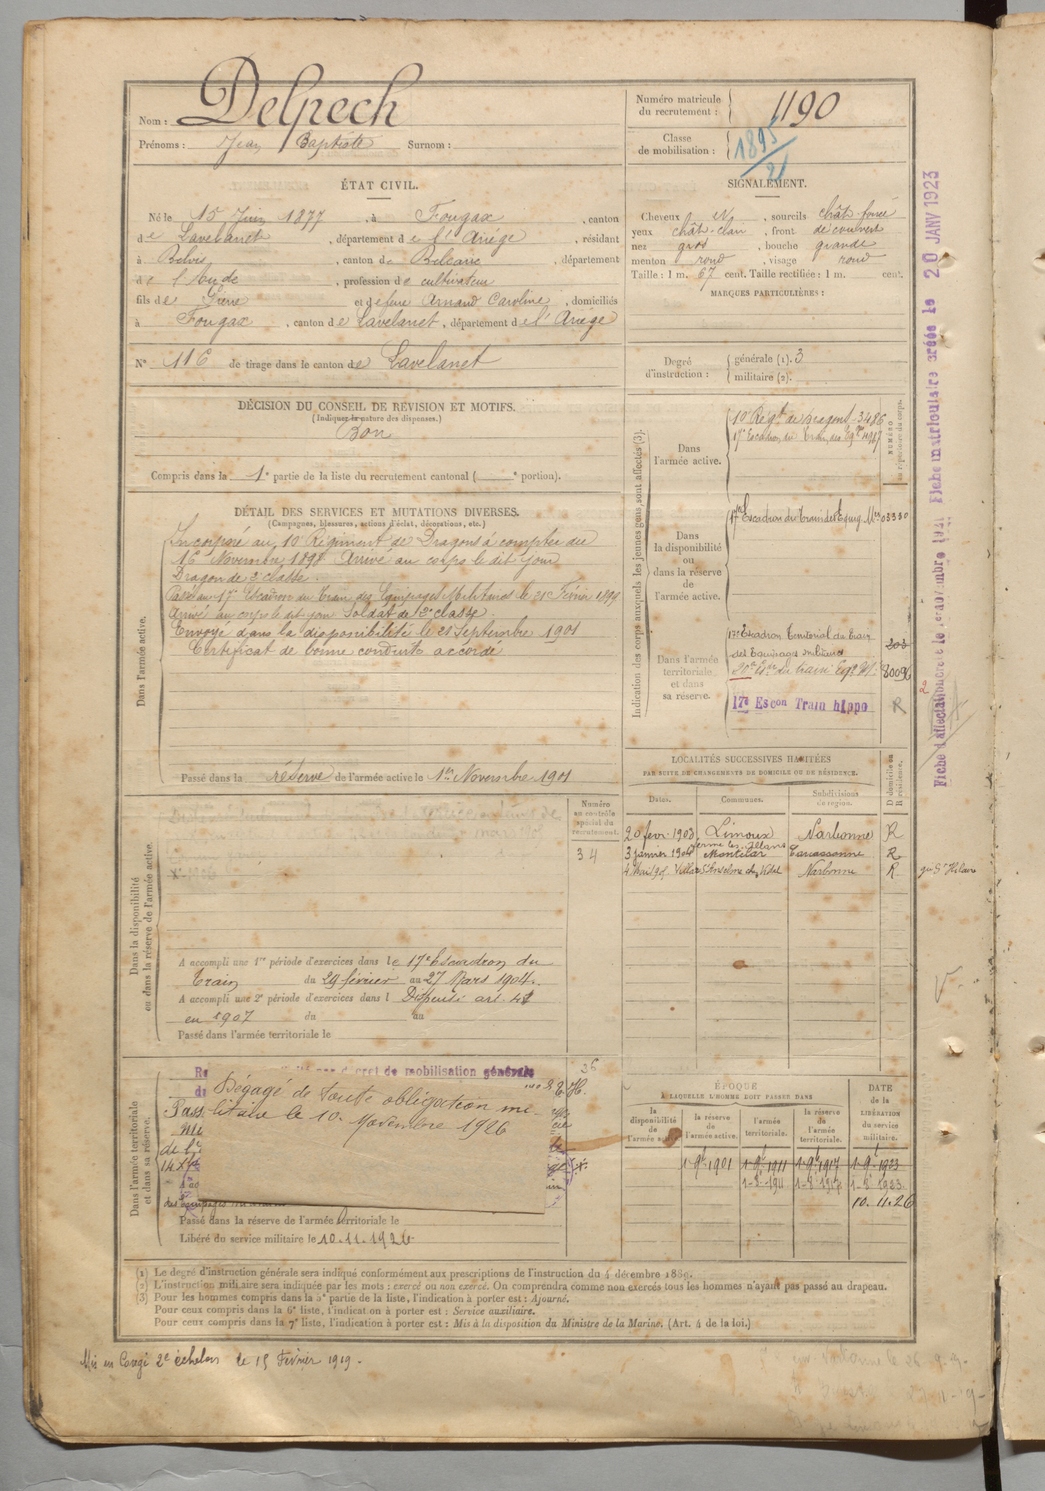 Nom : Delpech
Prénoms : Jean Baptiste Surnom :
Numéro matricule du recrutement : 1190
Classe de mobilisation : 1895/21
ÉTAT CIVIL.
Né le 15 Juin 1877, à Fougax, canton
de Lavelanet, département de l'Ariége, résidant
à Belvis, canton de Belcaire, département
de l'Aude, profession de cultivateur
fils de Pierre et de feue Arnaud Caroline, domiciliés
à Fougax, canton de Lavelanet, département de l'Ariége
N° 116 de tirage dans le canton de Lavelanet
SIGNALEMENT.
Cheveux N, sourcils chât. foncé
yeux chât. clair, front découvert
nez gros, bouche grande
menton rond, visage rond
Taille : 1 m. 67 cent. Taille rectifiée : 1 m. cent.
MARQUES PARTICULIÈRES :
Degré d'instruction : générale (1). 3
militaire (2).
DÉCISION DU CONSEIL DE RÉVISION ET MOTIFS.
(Indiquez la nature des dispenses.)
Bon
Compris dans la 1e partie de la liste du recrutement cantonal ( e portion).
DÉTAIL DES SERVICES ET MUTATIONS DIVERSES.
(Campagnes, blessures, actions d'éclat, décorations, etc.)
Dans l'armée active.
Incorporé au 10e Régiment de Dragons à compter du
16 Novembre 1898 Arrivé au corps le dit jour
Dragon de 2e classe.
Passé au 17e Escadron du Train des Equipages Militaires le 21 Février 1899
Arrivé au corps le dit jour Soldat de 2e classe.
Envoyé dans la disponibilité le 21 Septembre 1901
Certificat de bonne conduite accordé
Passé dans la réserve de l'armée active le 1er Novembre 1901
Indication des corps auxquels les jeunes gens sont affectés (3).
NUMÉRO au répertoire du corps.
Dans l'armée active.
10e Régt de Dragons 3486
17e Escadron du Train des Eqges 4987
Dans la disponibilité ou dans la réserve de l'armée active.
17e Escadron du Train des Equip. Mres 03330
Dans l'armée territoriale et dans sa réserve.
17e Escadron Territorial du Train
des Equipages militaires 303
20e Esc. du train Eqges M. 8009
17e Escon Train hippo R
Numéro au contrôle spécial du recrutement.
34
Dans la disponibilité ou dans la réserve de l'armée active.
A accompli une 1re période d'exercices dans le 17e Escadron du
Train du 29 février au 27 Mars 1904.
A accompli une 2e période d'exercices dans l Dispensé art. 41
en 1907 du au
Passé dans l'armée territoriale le
LOCALITÉS SUCCESSIVES HABITÉES
PAR SUITE DE CHANGEMENTS DE DOMICILE OU DE RÉSIDENCE.
Dates. Communes. Subdivisions de région. D domicile ou R résidence.
20 fevr. 1903 Limoux Narbonne R
3 janvier 1904 Montclar Carcassonne R
4 Mai 190 Villar St Anselme Narbonne R
Dans l'armée territoriale et dans sa réserve.
décret de mobilisation générale
Dégagé de toute obligation mi-
litaire le 10. Novembre 1926
Passé dans la réserve de l'armée territoriale le
Libéré du service militaire le 10.11.1926
ÉPOQUE
A LAQUELLE L'HOMME DOIT PASSER DANS
la disponibilité de l'armée active. la réserve de l'armée active. l'armée territoriale. la réserve de l'armée territoriale. DATE DE LA LIBÉRATION du service militaire.
1-9bre 1901 1-9bre 1911 1-9bre 1917 1-9bre 1923
10.11.26
(1) Le degré d'instruction générale sera indiqué conformément aux prescriptions de l'instruction du 4 décembre 1889.
(2) L'instruction militaire sera indiquée par les mots : exercé ou non exercé. On comprendra comme non exercés tous les hommes n'ayant pas passé au drapeau.
(3) Pour les hommes compris dans la 5e partie de la liste, l'indication à porter est : Ajourné.
Pour ceux compris dans la 6e liste, l'indication à porter est : Service auxiliaire.
Pour ceux compris dans la 7e liste, l'indication à porter est : Mis à la disposition du Ministre de la Marine. (Art. 4 de la loi.)
Mis en Congé 2e échelon le 15 Février 1919.
Fiche matriculaire créée le 20 JANV 1923